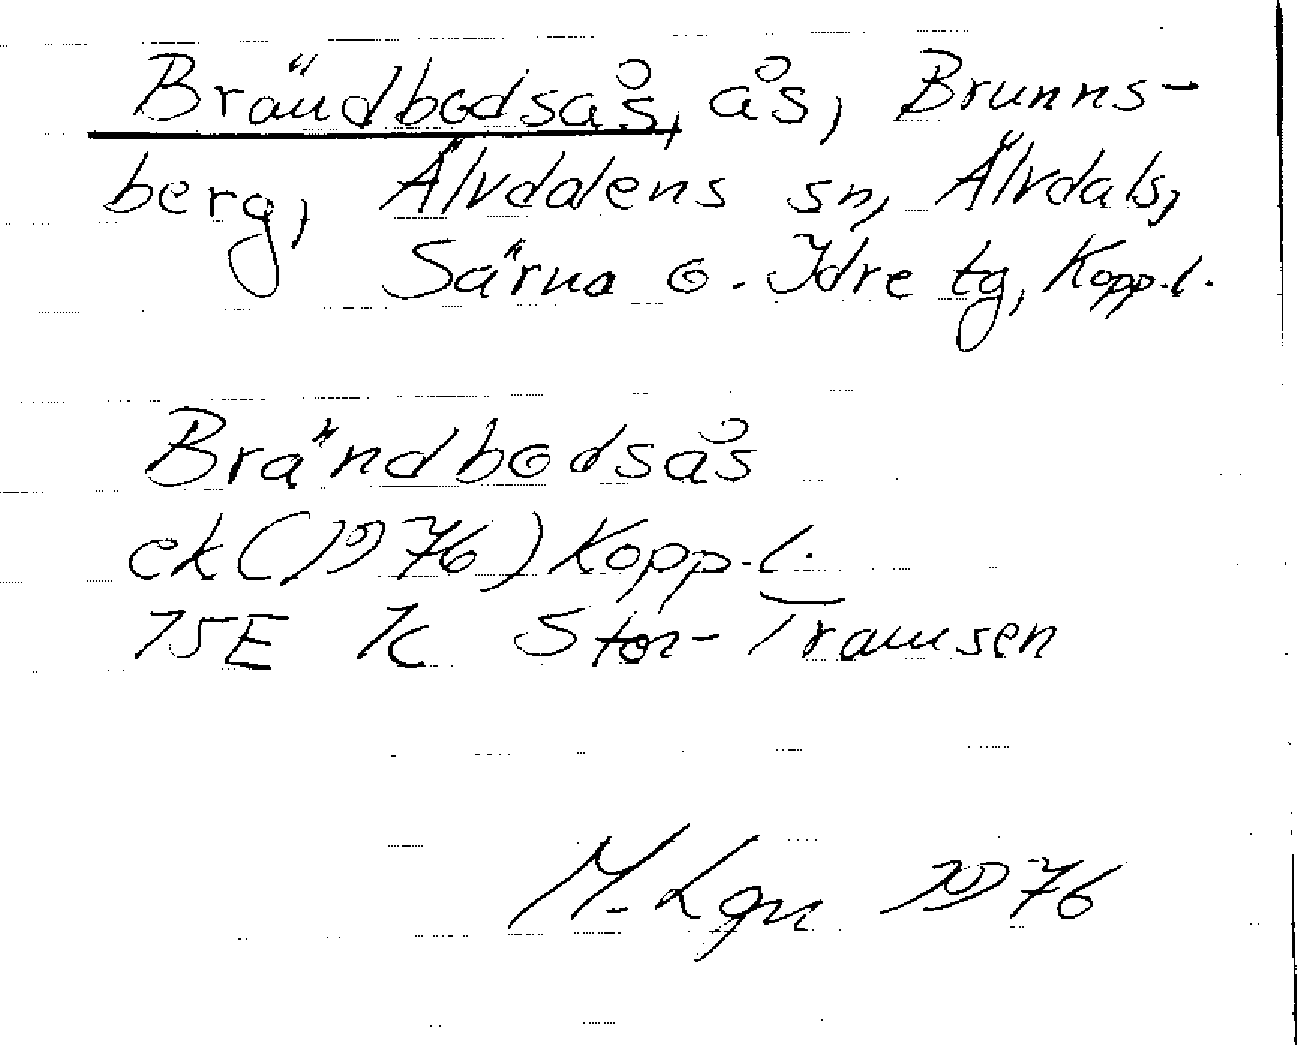 Brändbodsås, ås, Brunns-
berg, Älvdalens sn, Älvdals,
Särna o. Idre tg, Kopp.l.
Brändbodsås
ek (1976) Kopp.l.
15E 7c Stor-Tramsen
M. Lgn 1976